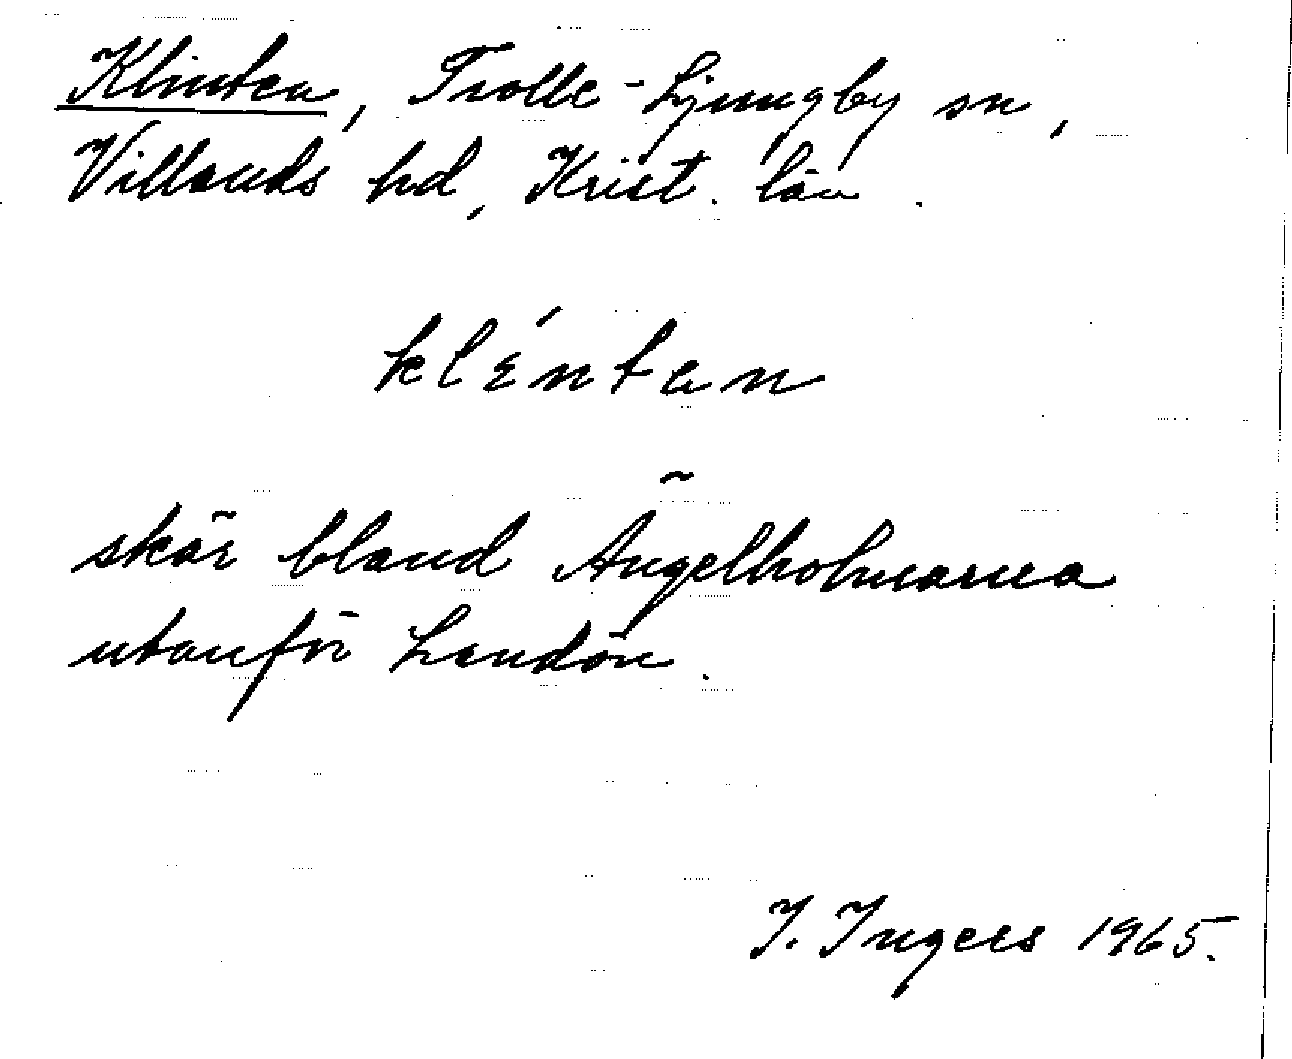 Klinten, Trolle-Ljungby sn,
Villands hd, Krist. län.
kléntan
skär bland Ängelholmarna
utanför Landön.
I. Ingers 1965.